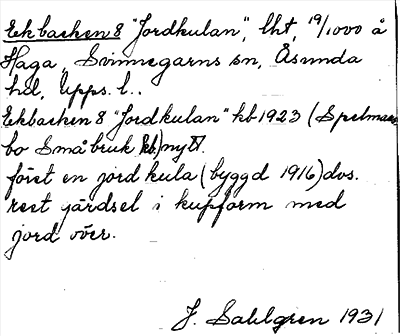 Ekbacken 8 "Jordkulan", lht, 19/1000 å
Haga, Svinnegarns sn, Åsunda
hd, Upps. l..
Ekbacken 8 "Jordkulan" kb 1923 (Spelmans
bo Småbruk kb.) nytt.
först en jordkula (byggd 1916) dvs.
rest gärdsel i kupform med
jord över.
J. Sahlgren 1931